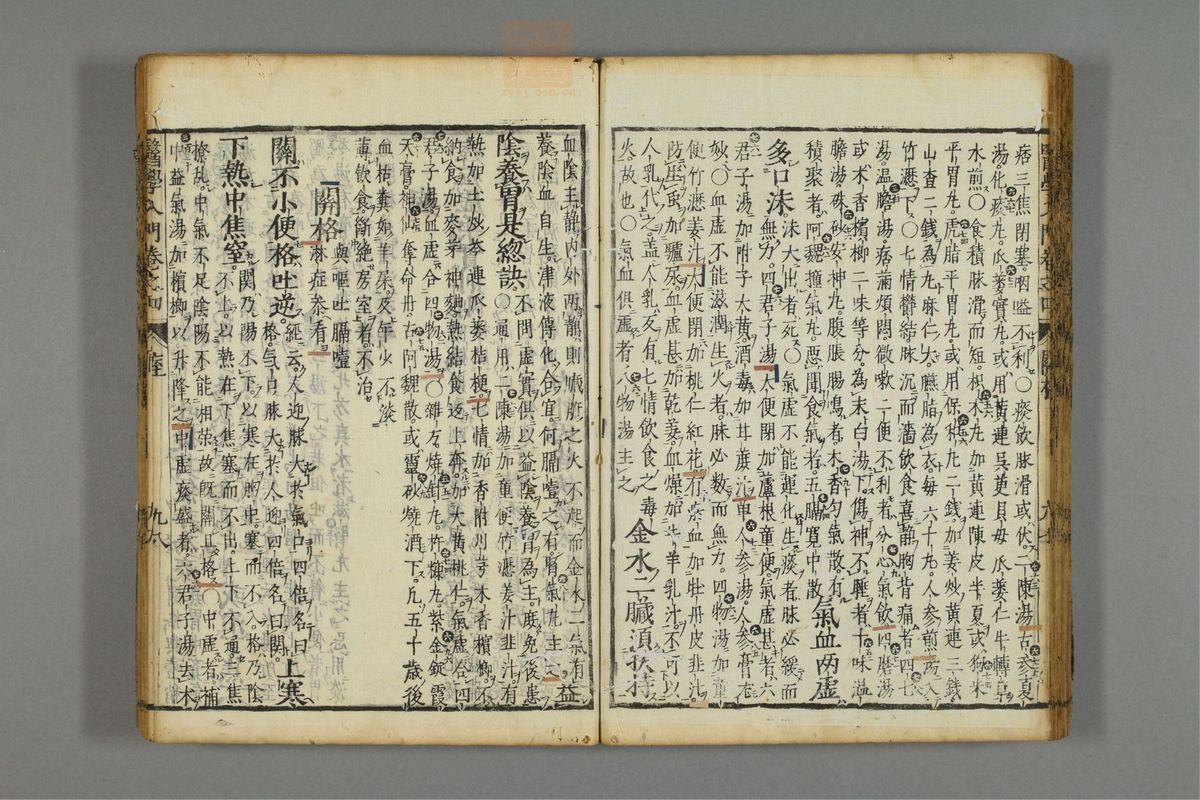 痞三焦閉塞。咽嗌不利〇痰飲脉滑或伏。二陳湯古參夏
湯化痰丸。瓜蔞實丸。或用黄連吳茱貝母瓜蔞仁牛轉草
水煎〇食積脉滑而短。枳木丸。加黄連陳皮半夏麯。
平胃丸。虎脂平胃丸。或用保和丸二錢。加姜炒黄連三錢。
山查二錢為丸麻仁大。臙脂為衣每六十丸。人參煎湯入
竹瀝下〇七情欝結脉沉而濇飲食喜靜胸背痛者四七
湯。温膽湯。痞滿煩悶。微嗽二便不利者。分心氣飲。四磨湯
或木香檳榔二味等分為末白湯下。傷神不睡者。十味温
膽湯。硃砂安神丸。腹脹腸鳴者。木香勻氣散。有
積聚者。阿魏撞氣丸。惡聞食氣者。五膈寛中散 氣血兩虚
多口沫。沫大出者死〇氣虚不能運化生痰者脉必緩而
無力。四君子湯。大便閉加蘆根童便。氣虚甚者。六
君子湯加附子大黄。酒毒加甘蔗汁。單人參湯。人參膏尤
妙〇血虚不能滋潤生火者。脉必数而無力。四物湯加童
便竹瀝姜汁。大便閉加桃仁紅花。有瘀血加牡丹皮韭汁。
人乳代之。盖人乳反有七情飲食之毒 金水二臟湏扶持
火故也〇氣血俱虚者。八物湯主之
血陰主靜內外兩靜則臟腑之火不起而金水二氣有
養陰血自生。津液傳化合宜何膈噎之有腎氣丸主之 益
陰養胃是總訣。不問虚實俱以益陰養胃為主。庶免後患
〇通用二陳湯加童便竹瀝姜汁韭汁。有
熱加土炒芩連瓜蔞桔梗。七情加香附川芎木香檳榔。不
納食加麥芽神麯。熱結食返上奔。加大黄桃仁。氣虚合四
君子湯。血虚合四物湯〇雜方。燒針丸。柞㯶丸。紫金錠霞
天膏。神仙奪命丹。古阿魏散。或靈砂燒酒下。凡五十歲後
血枯糞如羊屎。及年少不淡
薄飲食。斷絶房室者。不治
關格 與嘔吐膈噎
淋症參看
關不小便格吐逆。經云。人迎脉大於氣口四倍名曰
格。氣口脉大於人迎四倍名曰關。 上寒
下熱中焦窒。關乃陽不下。以寒在胸中塞而不入。格乃陰
不上。以熱在下焦塞而不出。上下不通。三焦
撩乱。中氣不足陰陽不能相榮故既關且格〇中虚者。補
中益氣湯加檳榔以升降之。中虚痰盛者。六君子湯去木
醫學入門卷之四
關格
九十八